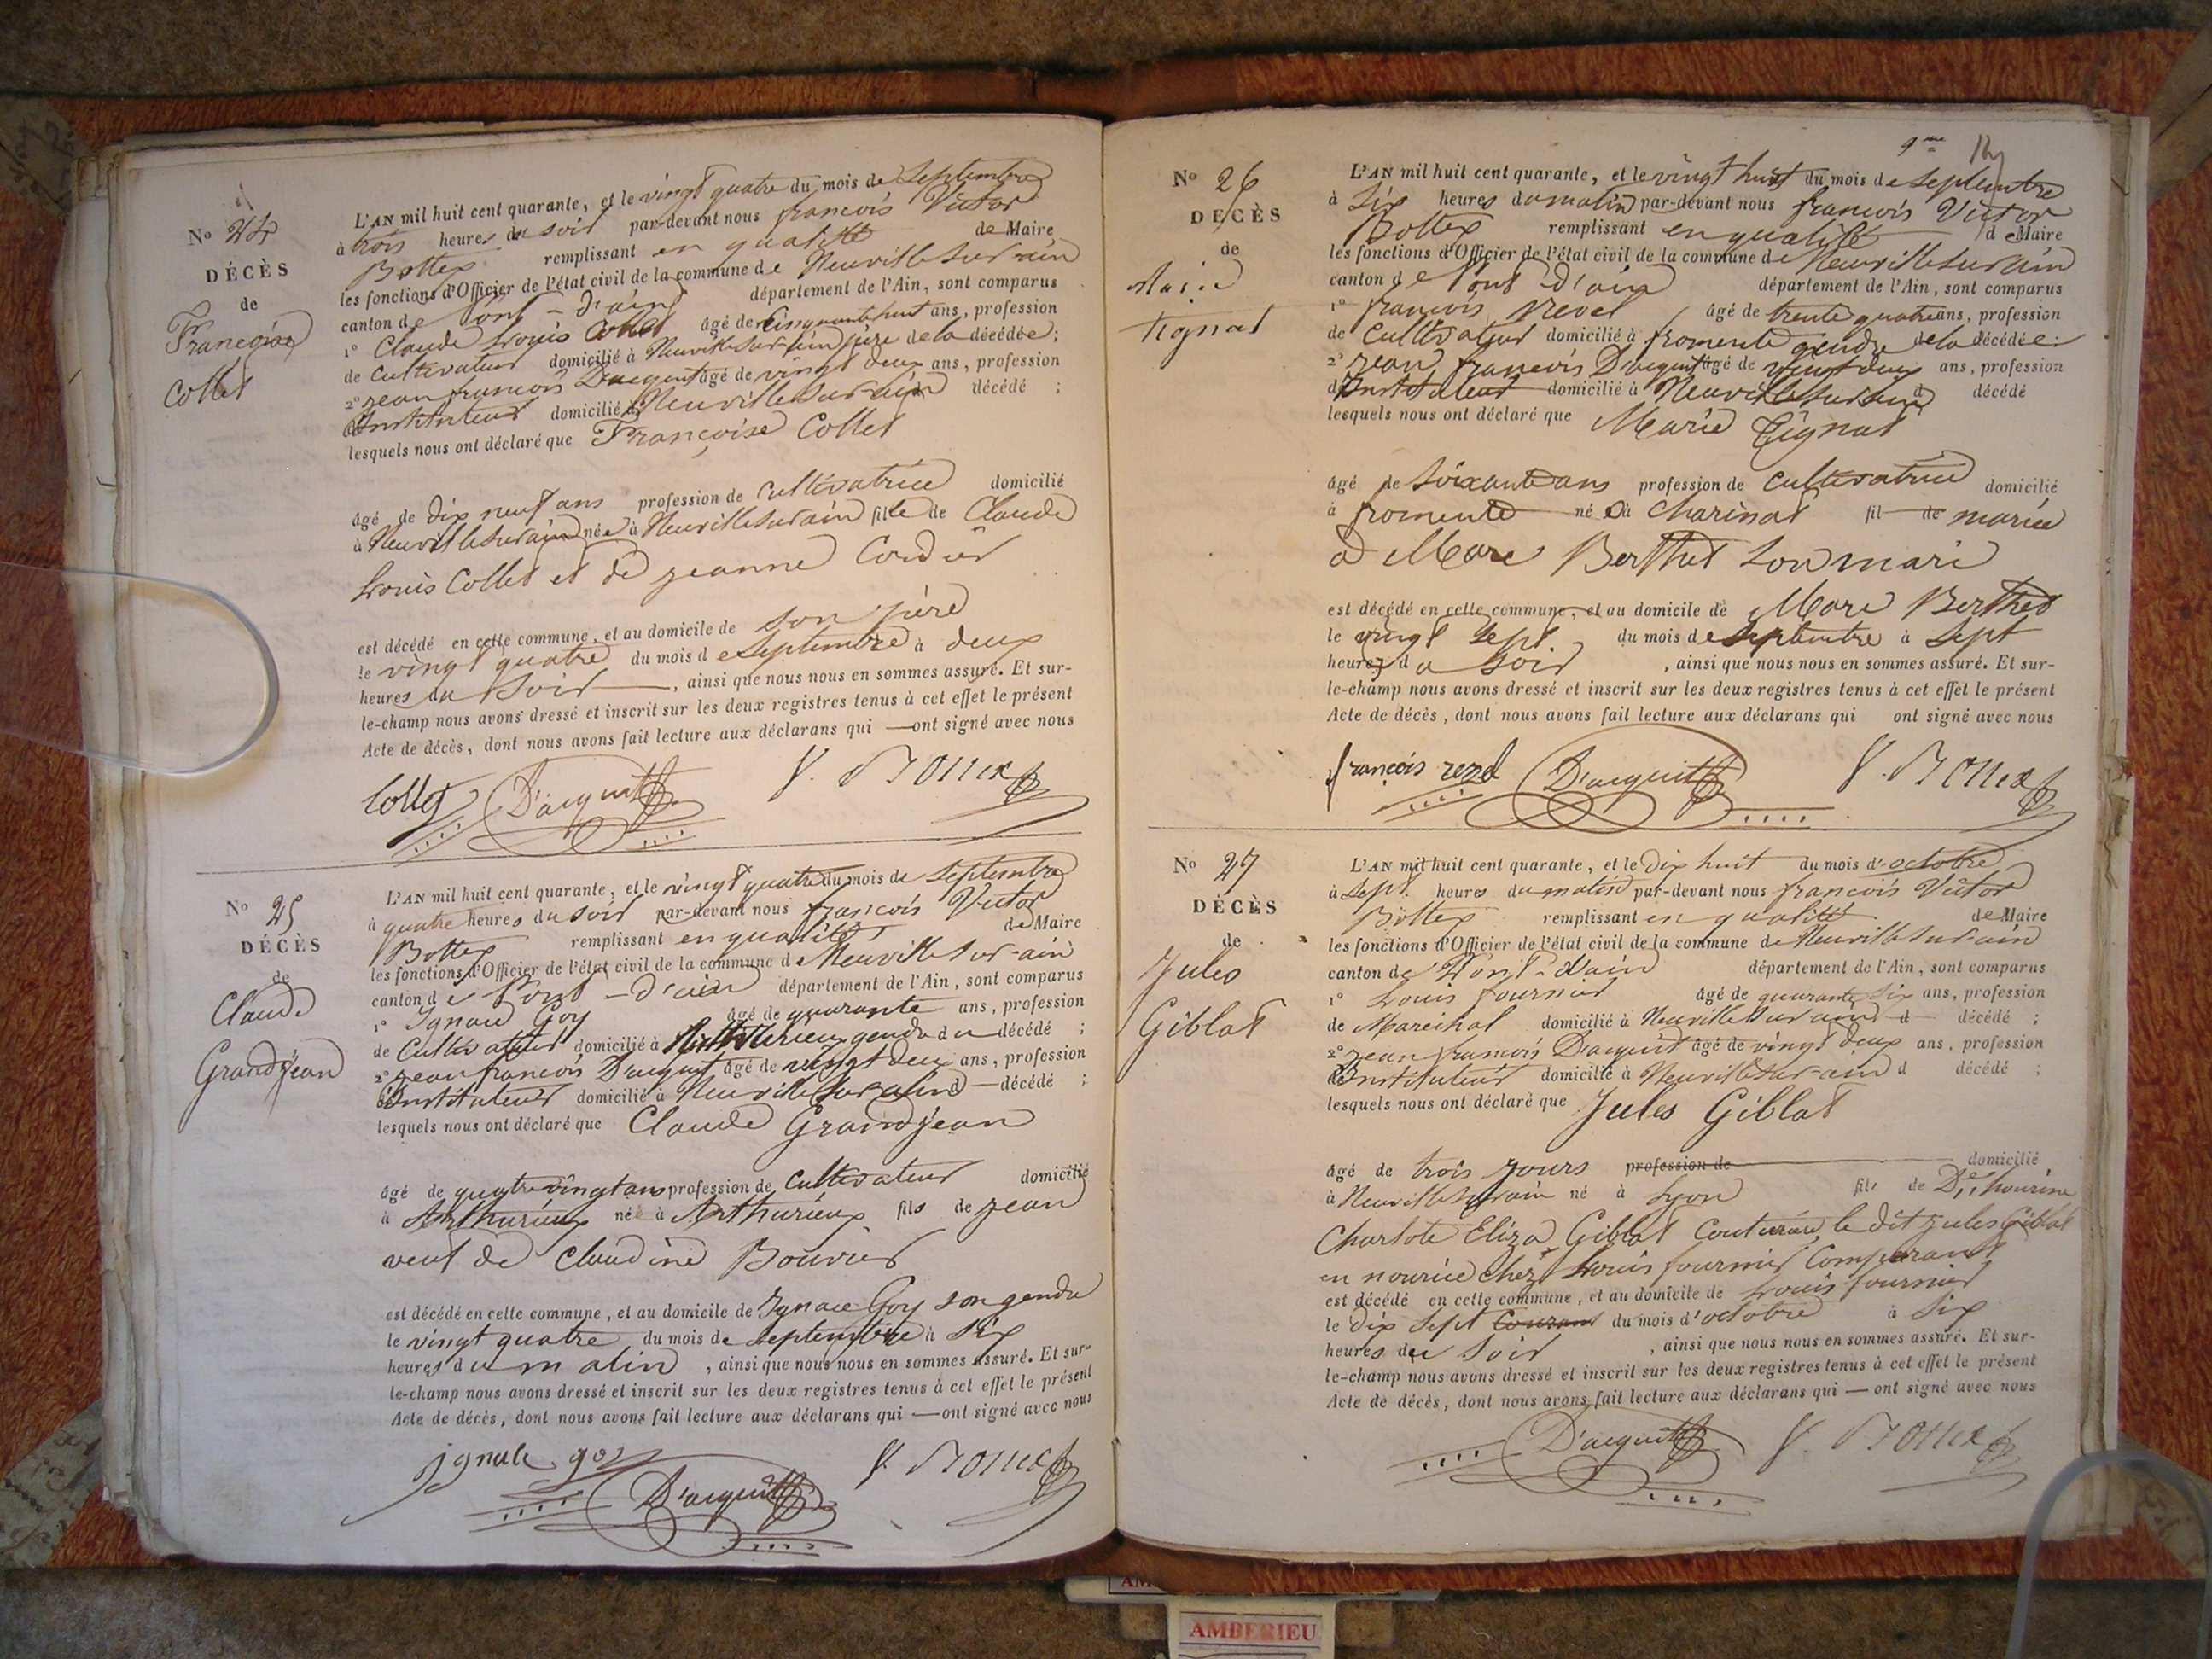 N° 24
DÉCÈS
de
Françoise
Collet
L'AN mil huit cent quarante, et le vingt quatre du mois de Septembre
à trois heures du soir par-devant nous françois Victor
Bottex remplissant en qualité de Maire
les fonctions d'Officier de l'état civil de la commune de Neuville sur ain
canton de Pont-d'ain département de l'Ain, sont comparus
1° Claude Louis Collet âgé de Cinquante huit ans, profession
de Cultivateur domicilié à Neuville sur ain père de la décédée ;
2° jean françois D'acquit âgé de vingt deux ans, profession
d'Instituteur domicilié à Neuville sur ain d décédé ;
lesquels nous ont déclaré que Françoise Collet
âgé de dix neuf ans profession de Cultivatrice domicilié
à Neuville sur ain née à Neuville sur ain fille de Claude
Louis Collet et de jeanne Cordier
est décédé en cette commune, et au domicile de son père
le vingt quatre du mois de Septembre à deux
heures du Soir —, ainsi que nous nous en sommes assuré. Et sur-
le-champ nous avons dressé et inscrit sur les deux registres tenus à cet effet le présent
Acte de décès, dont nous avons fait lecture aux déclarans qui — ont signé avec nous
Collet D'acquit V. Bottex
N° 25
DÉCÈS
de
Claude
Grandjean
L'AN mil huit cent quarante, et le vingt quatre du mois de Septembre
à quatre heures du soir par-devant nous françois Victor
Bottex remplissant en qualité de Maire
les fonctions d'Officier de l'état civil de la commune de Neuville sur-ain
canton de Pont-d'ain département de l'Ain, sont comparus
1° Ignace Goy âgé de quarante ans, profession
de Cultivateur domicilié à gendre du décédé ;
2° jean françois D'acquit âgé de vingt deux ans, profession
d'Instituteur domicilié à Neuville sur ain d — décédé ;
lesquels nous ont déclaré que Claude Grandjean
âgé de quatre vingt ans profession de Cultivateur domicilié
à Arthurieux né à Arthurieux fils de jean
veuf de Claudine Bouvier
est décédé en cette commune, et au domicile de Ignace Goy son gendre
le vingt quatre du mois de Septembre à Six
heures du matin, ainsi que nous nous en sommes assuré. Et sur-
le-champ nous avons dressé et inscrit sur les deux registres tenus à cet effet le présent
Acte de décès, dont nous avons fait lecture aux déclarans qui — ont signé avec nous
D'acquit V. Bottex
9me
N° 26
DÉCÈS
de
Marie
Tignat
L'AN mil huit cent quarante, et le vingt huit du mois de Septembre
à Six heures du matin par-devant nous françois Victor
Bottex remplissant en qualité d Maire
les fonctions d'Officier de l'état civil de la commune de Neuville sur ain
canton de Pont-d'ain département de l'Ain, sont comparus
1° françois Revel âgé de trente quatre ans, profession
de Cultivateur domicilié à fromente gendre de la décédée :
2° jean françois D'acquit âgé de vingt deux ans, profession
d'Instituteur domicilié à Neuville sur ain d décédé
lesquels nous ont déclaré que Marie Tignat
âgé de Soixante ans profession de Cultivatrice domicilié
à fromente née à Charinat fil de mariée
à Marc Berthet son mari
est décédé en cette commune, et au domicile de Marc Berthet
le vingt sept du mois de Septembre à Sept
heures du Soir, ainsi que nous nous en sommes assuré. Et sur-
le-champ nous avons dressé et inscrit sur les deux registres tenus à cet effet le présent
Acte de décès, dont nous avons fait lecture aux déclarans qui ont signé avec nous
françois revel D'acquit V. Bottex
N° 27
DÉCÈS
de
Jules
Giblat
L'AN mil huit cent quarante, et le Dix huit du mois d'octobre
à Sept heures du matin par-devant nous françois Victor
Bottex remplissant en qualité de Maire
les fonctions d'Officier de l'état civil de la commune de Neuville sur-ain
canton de Pont-d'ain département de l'Ain, sont comparus
1° Louis fournier âgé de quarante Six ans, profession
de Maréchal domicilié à Neuville sur ain d décédé ;
2° jean françois D'acquit âgé de vingt deux ans, profession
d'Instituteur domicilié à Neuville sur-ain d décédé ;
lesquels nous ont déclaré que Jules Giblat
âgé de trois jours profession de domicilié
à Neuville sur ain né à Lyon fils de Dlle
Charlote Eliza Giblat Couturière, le dit jules Giblat
en nourice chez Louis fournier Comparant
est décédé en cette commune, et au domicile de Louis fournier
le dix sept Courant du mois d'octobre à Six
heures du Soir, ainsi que nous nous en sommes assuré. Et sur-
le-champ nous avons dressé et inscrit sur les deux registres tenus à cet effet le présent
Acte de décès, dont nous avons fait lecture aux déclarans qui — ont signé avec nous
D'acquit V. Bottex
AMBERIEU